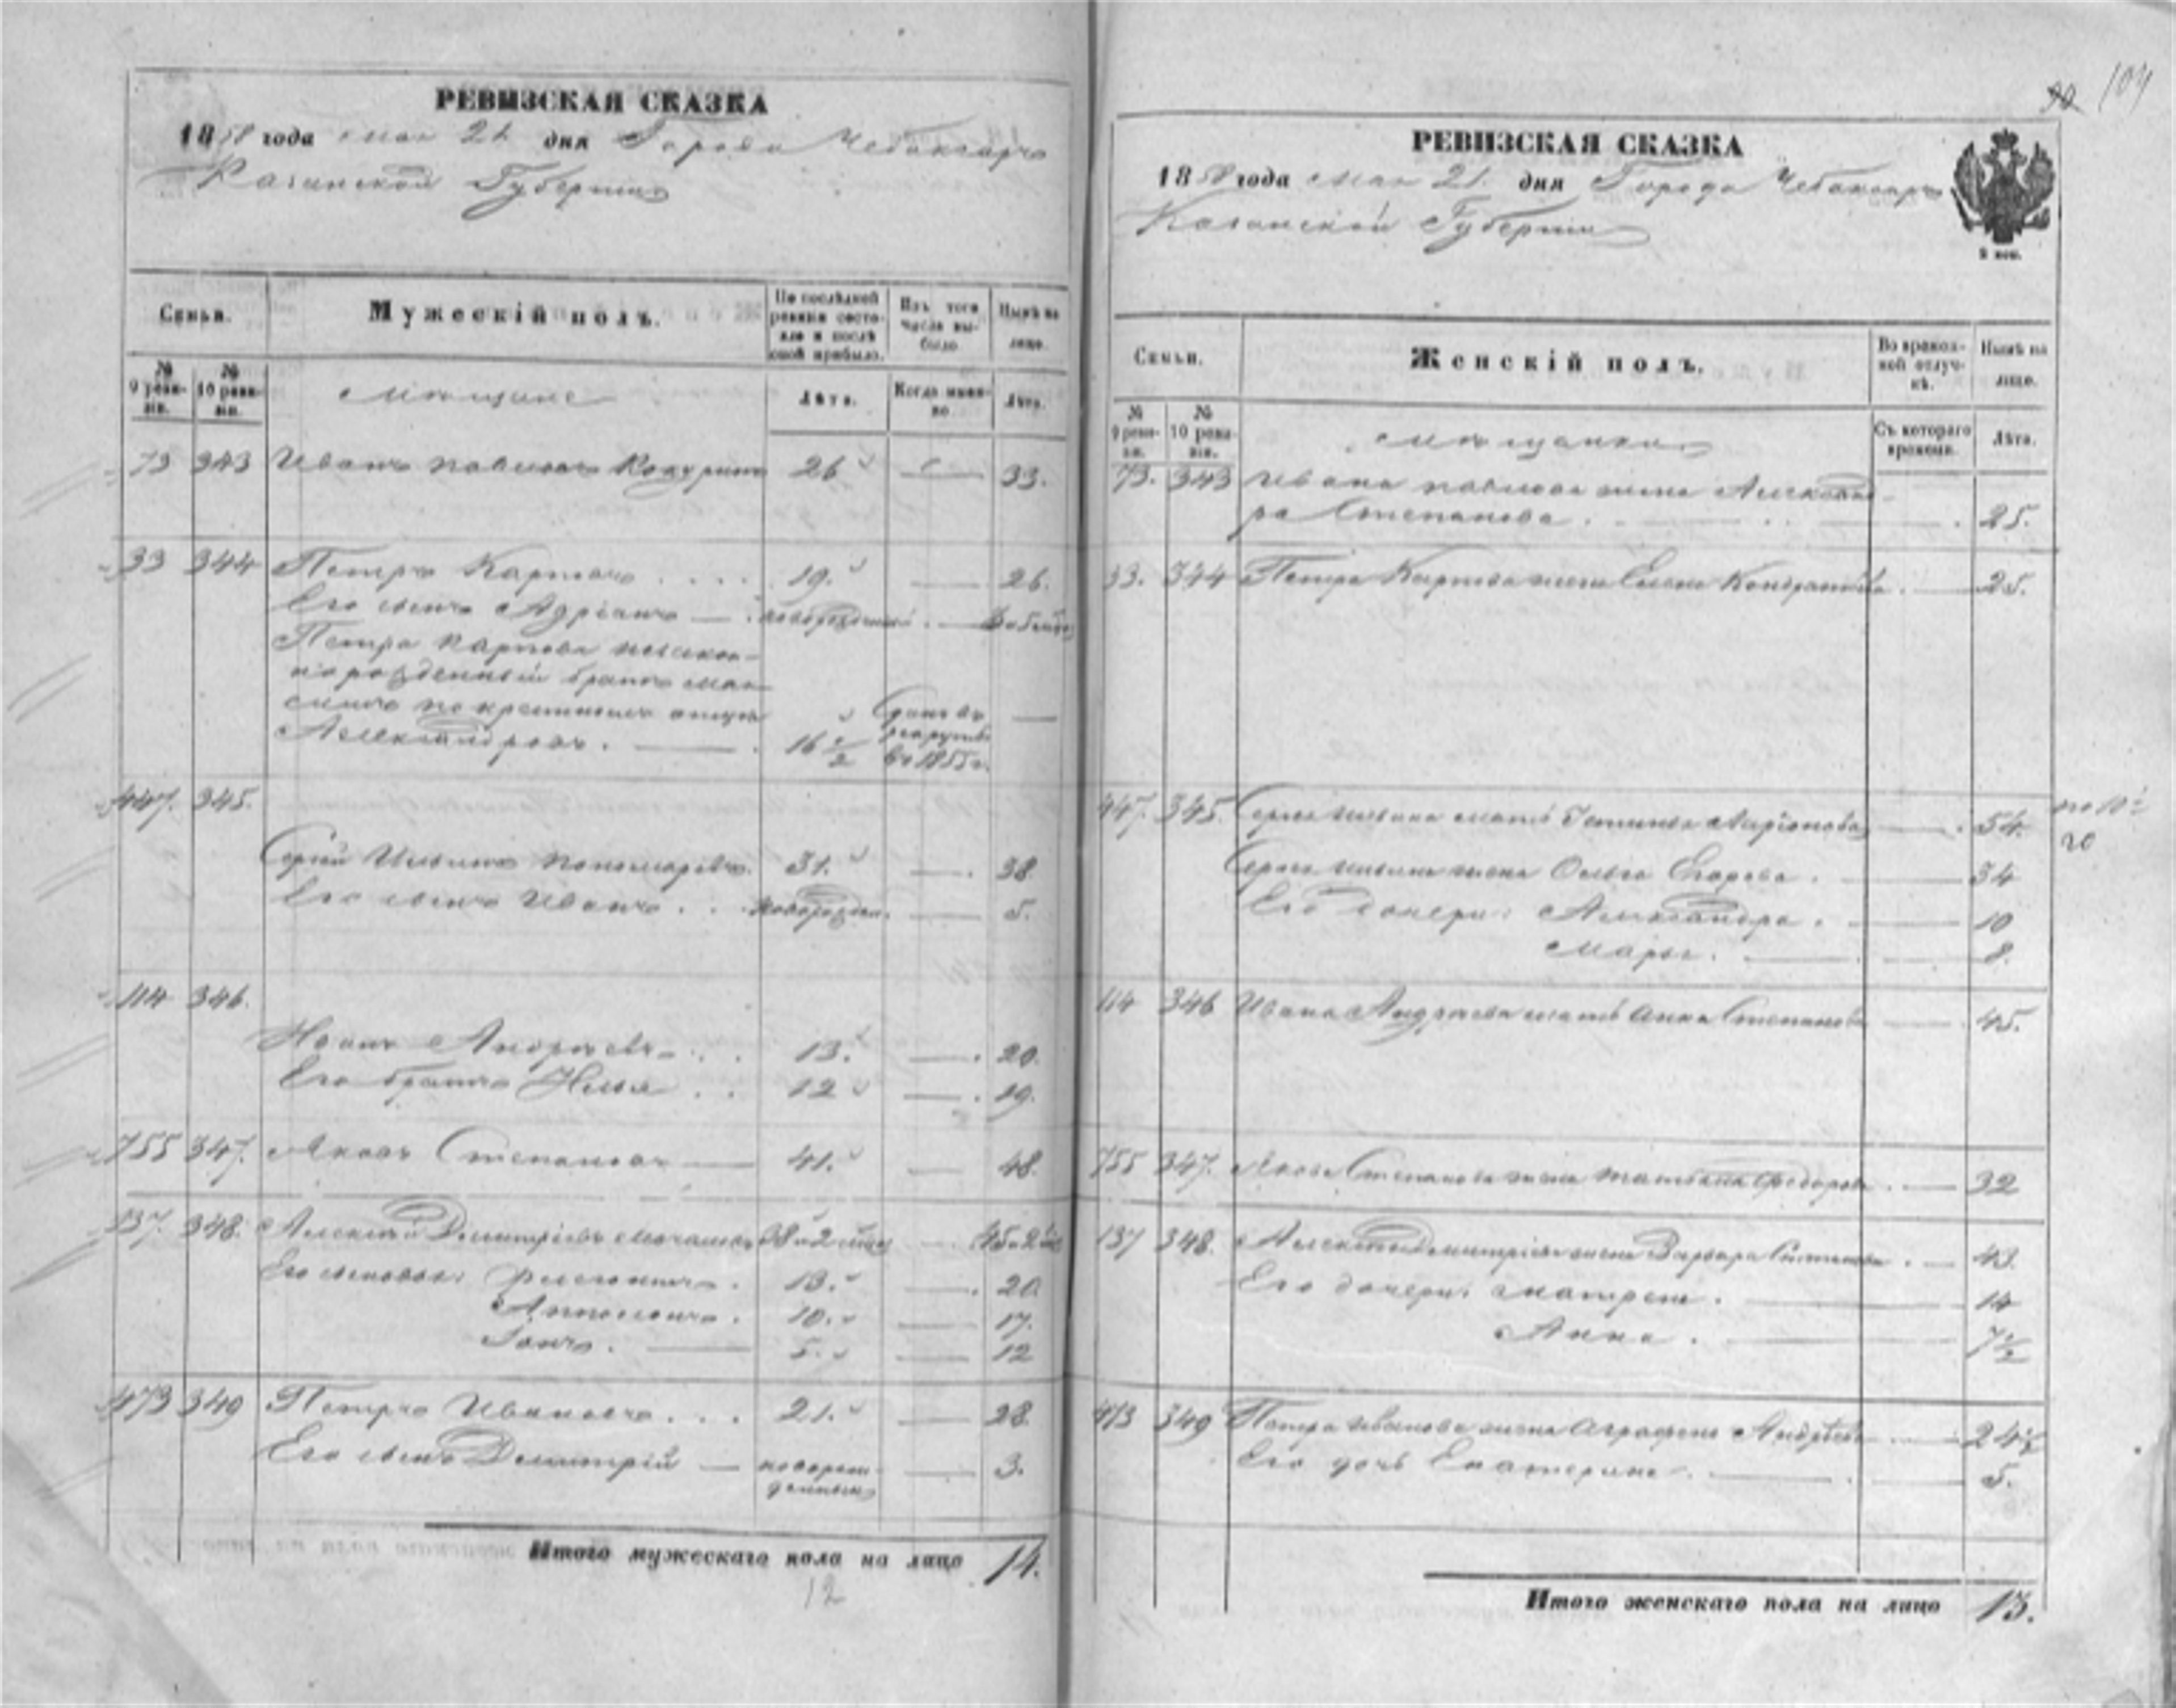 РЕВИЗСКАЯ СКАЗКА
1858 года мая 21 дня Города Чебоксаръ
Казанской Губерніи
Семьи.
Мужескій полъ.
По послѣдней ревизіи состояло и послѣ оной прибыло.
Изъ того числа выбыло.
Нынѣ на лицо.
№ 9 ревизіи.
№ 10 ревизіи.
мѣщане
Лѣта.
Когда именно.
Лѣта.
73 343 Иванъ Павловъ Кокуринъ 26 — 33.
33 344 Петръ Карповъ . . . . 19. — 26.
Его сынъ Адріанъ — новорожденный . —
Петра Карпова незакон-
норожденный братъ Мак-
симъ по крестному отцу —
Александровъ . — 16 1/2 Сданъ въ рекруты въ 1855 г.
447. 345.
Сергій Ильинъ Пономаревъ. 31. — . 38
Его сынъ Иванъ . . новорожден. — 5.
114 346.
Иванъ Андреевъ . . 13. — . 20.
Его братъ Илья . . 12 — . 19.
755 347. Яковъ Степановъ — 41. — 48.
137. 348. Алексѣй Димитріевъ 38 —
Его сыновья: . 13. — . 20.
Апполонъ . 10. — 17.
— 5. — 12
473 349 Петръ Ивановъ . . . 21. — 28.
Его сынъ Димитрій — новорож-
денный — 3.
Итого мужескаго пола на лицо 14.
12
90 104
РЕВИЗСКАЯ СКАЗКА
1858 года мая 21. дня Города Чебоксаръ
Казанской Губерніи
Семьи.
Женскій полъ.
Во временной отлучкѣ.
Нынѣ на лицо.
№ 9 ревизіи.
№ 10 ревизіи.
мѣщанки
Съ котораго времени.
Лѣта.
73. 343 Ивана Павлова жена Александ-
ра Степанова . — . 25.
33. 344 Петра Карпова жена Елена Кондратьева . — 25.
447. 345. Сергія Ильина мать Ларіонова — . 54.
Сергія Ильина жена Ольга Егорова . — 34
Его дочери: Александра . — 10
Марья . — 8.
114 346 Ивана Андреева мать Анна Степанова — . 45.
755 347. Якова Степанова жена Татьяна Федорова . — 32
137 348. Алексѣя Димитріева жена Варвара . — 43.
Его дочери: Матрена . — 14
Анна . — 7 1/2
473 349 Петра Иванова жена Аграфена Андреева — 24 1/2
Его дочь Екатерина . — 5.
Итого женскаго пола на лицо 13.